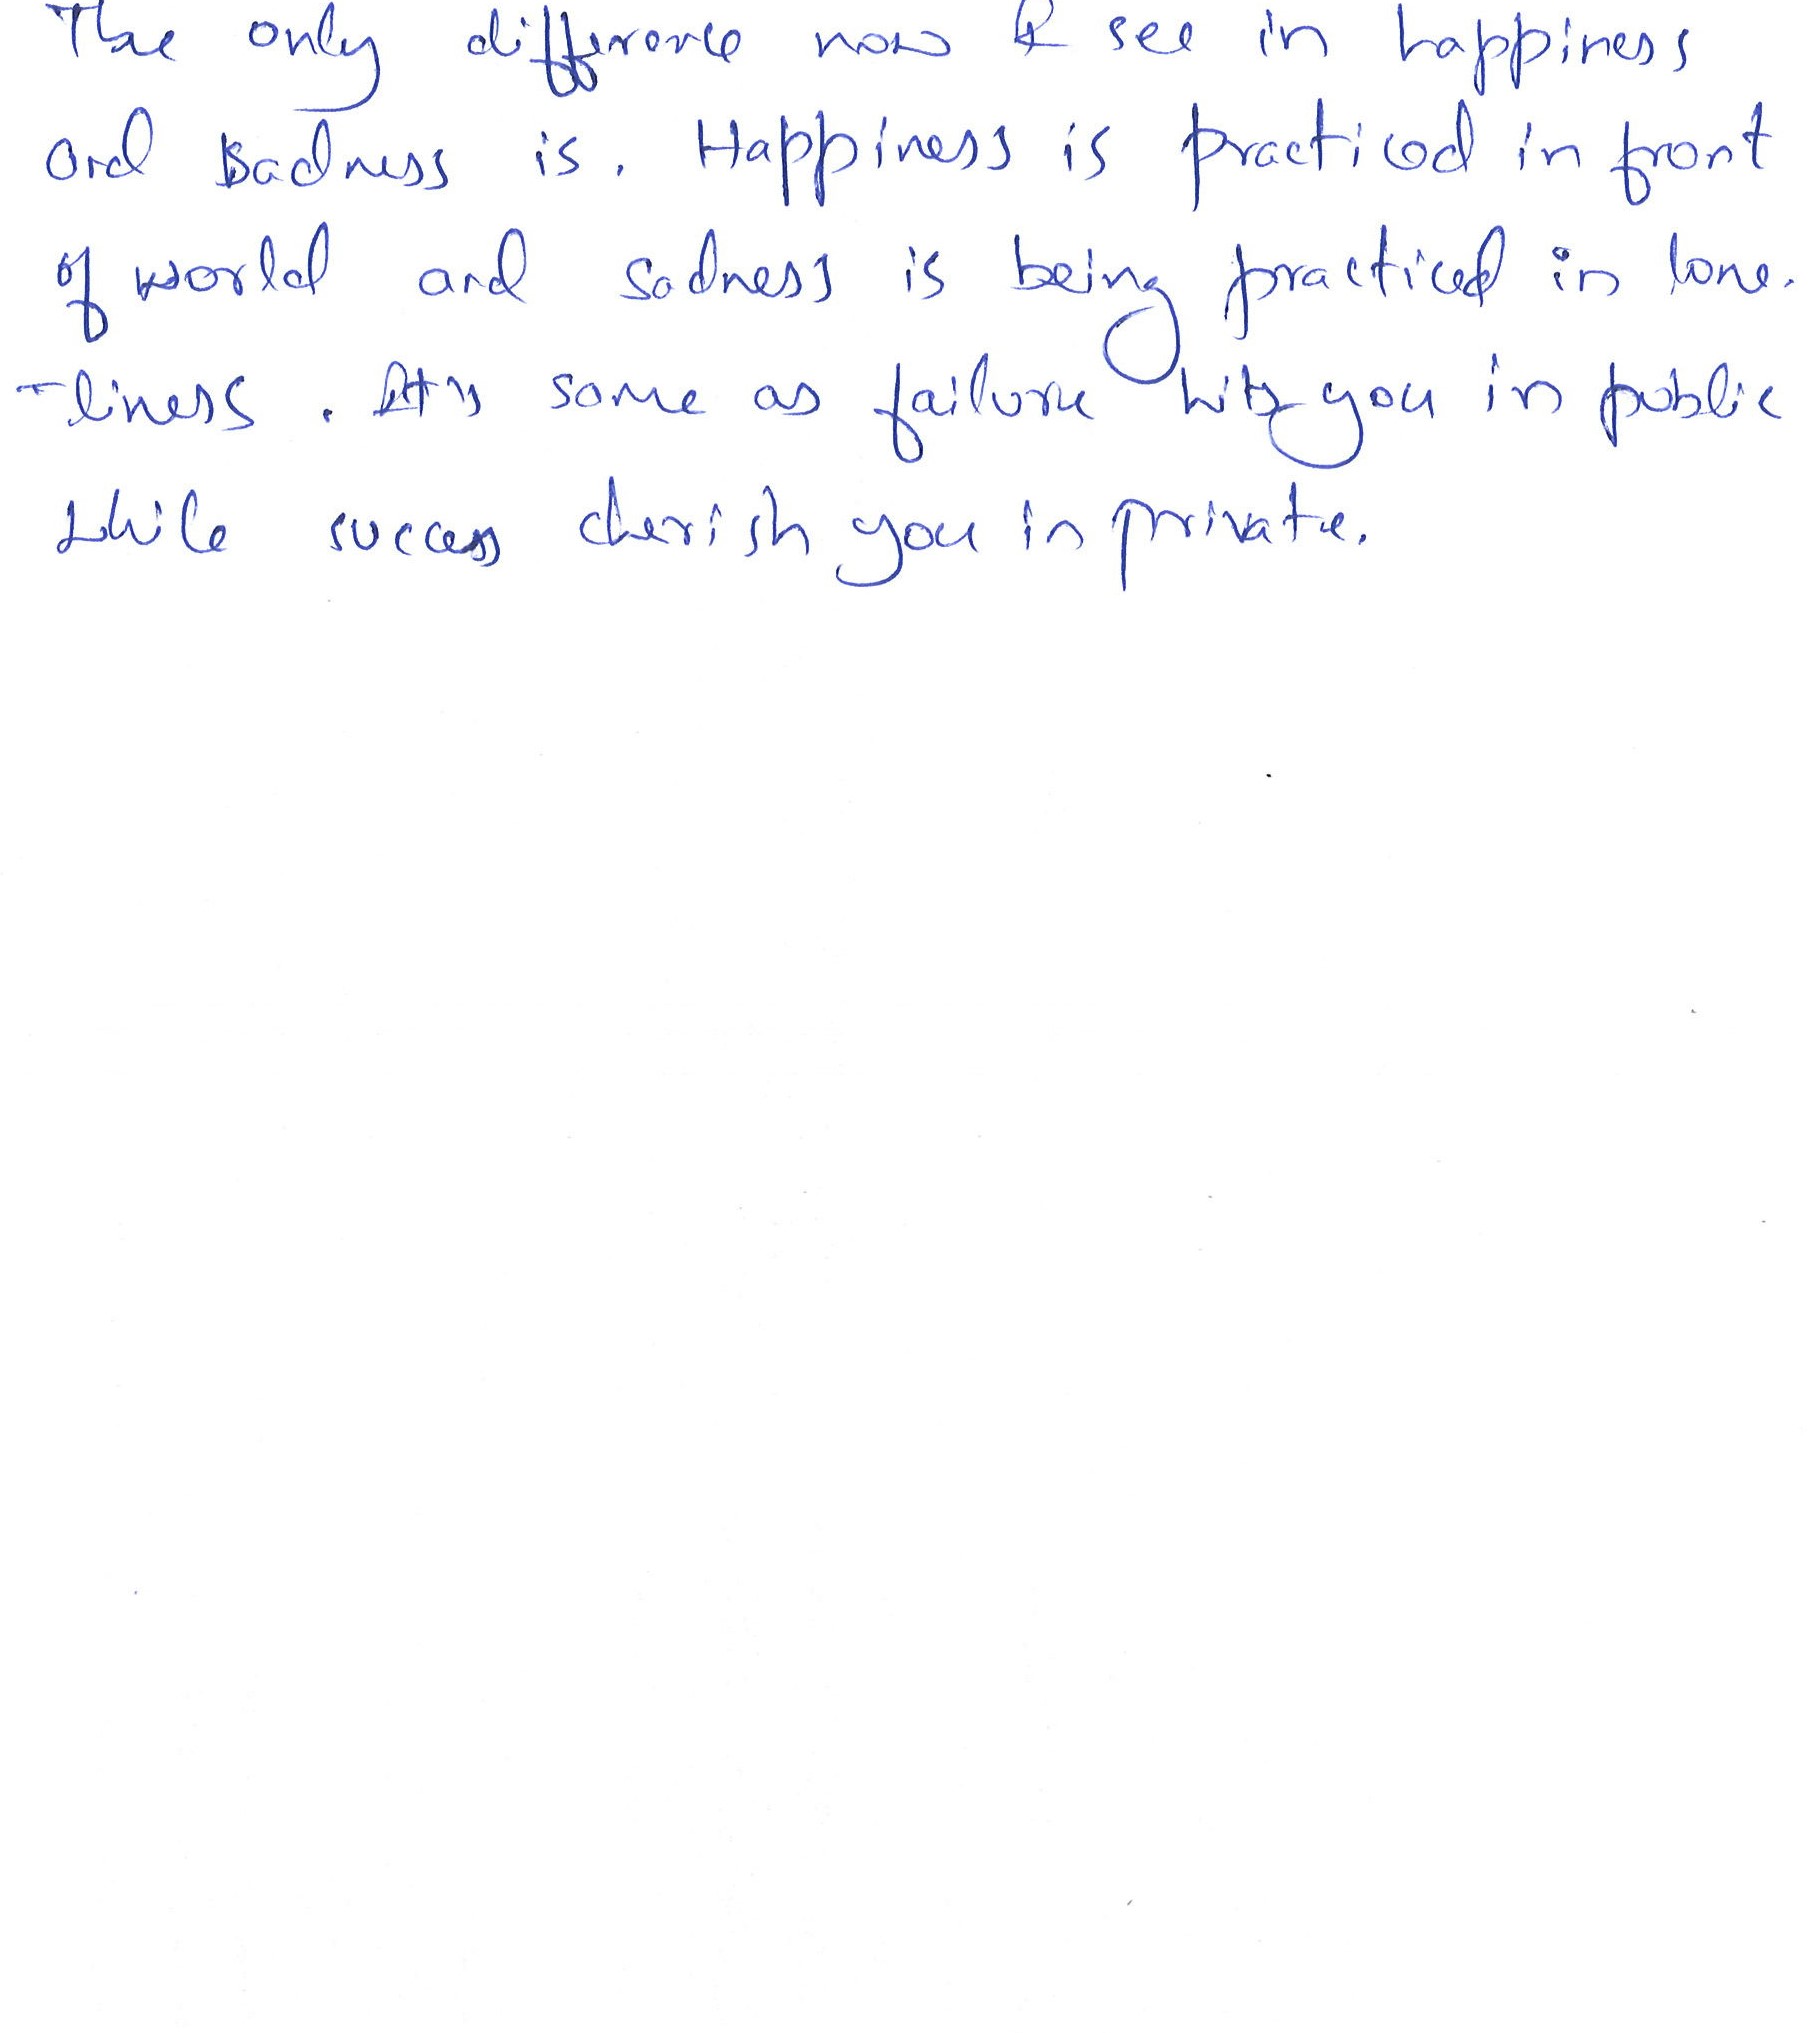 The only difference now I see in happiness
and Sadness is. Happiness is practiced in front
of world and sadness is being practiced in lone.
-liness. It's same as failure hits you in public
while success cherish you in private.